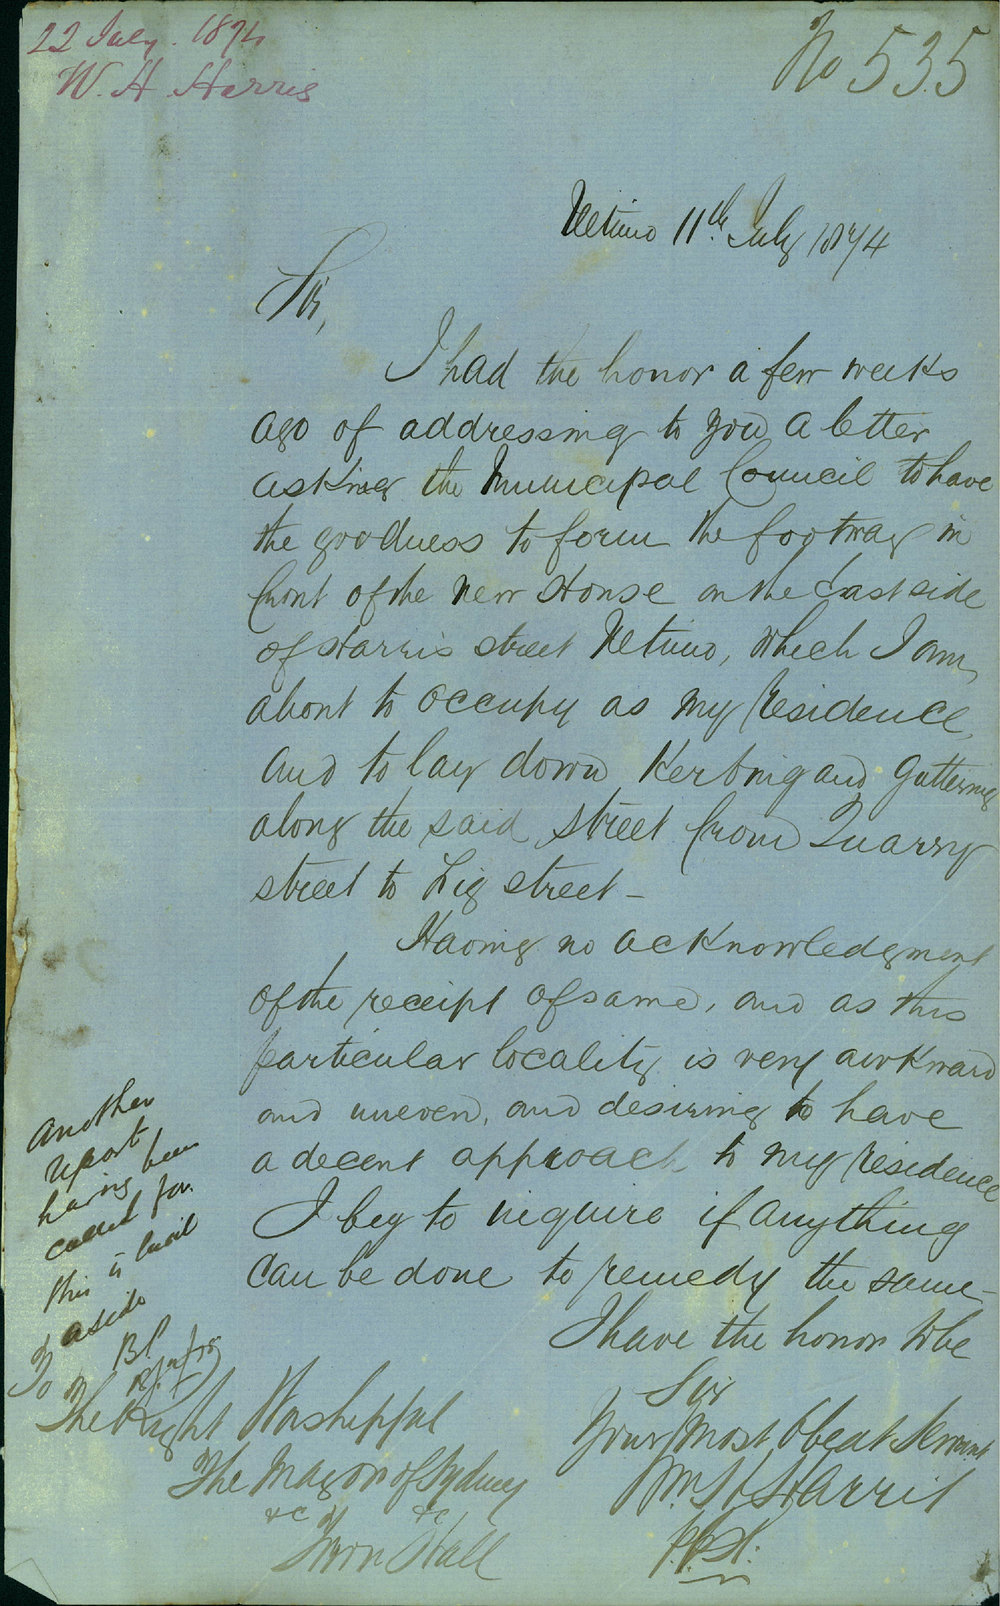 22 July. 1874
W. H. Harris
No 535
Ultimo 11th July 1874
Sir,
I had the honor a few weeks
ago of addressing to you a letter
asking the Municipal Council to have
the goodness to form the footway in
front of the new House on the East side
of Harris street Ultimo, which I am
about to occupy as my residence,
and to lay down Kerbing and Guttering
along the said street from Quarry
street to Fig street -
Having no acknowledgment
of the receipt of same, and as this
particular locality is very awkward
and uneven, and desiring to have
a decent approach to my residence
I beg to inquire if anything
can be done to remedy the same -
I have the honor to be
Sir
Your most Obedt Servant
Wm. H Harris
Another
report
having been
called for
this is laid
aside
To
The Right Worshipful
The Mayor of Sydney
&c &c
Town Hall